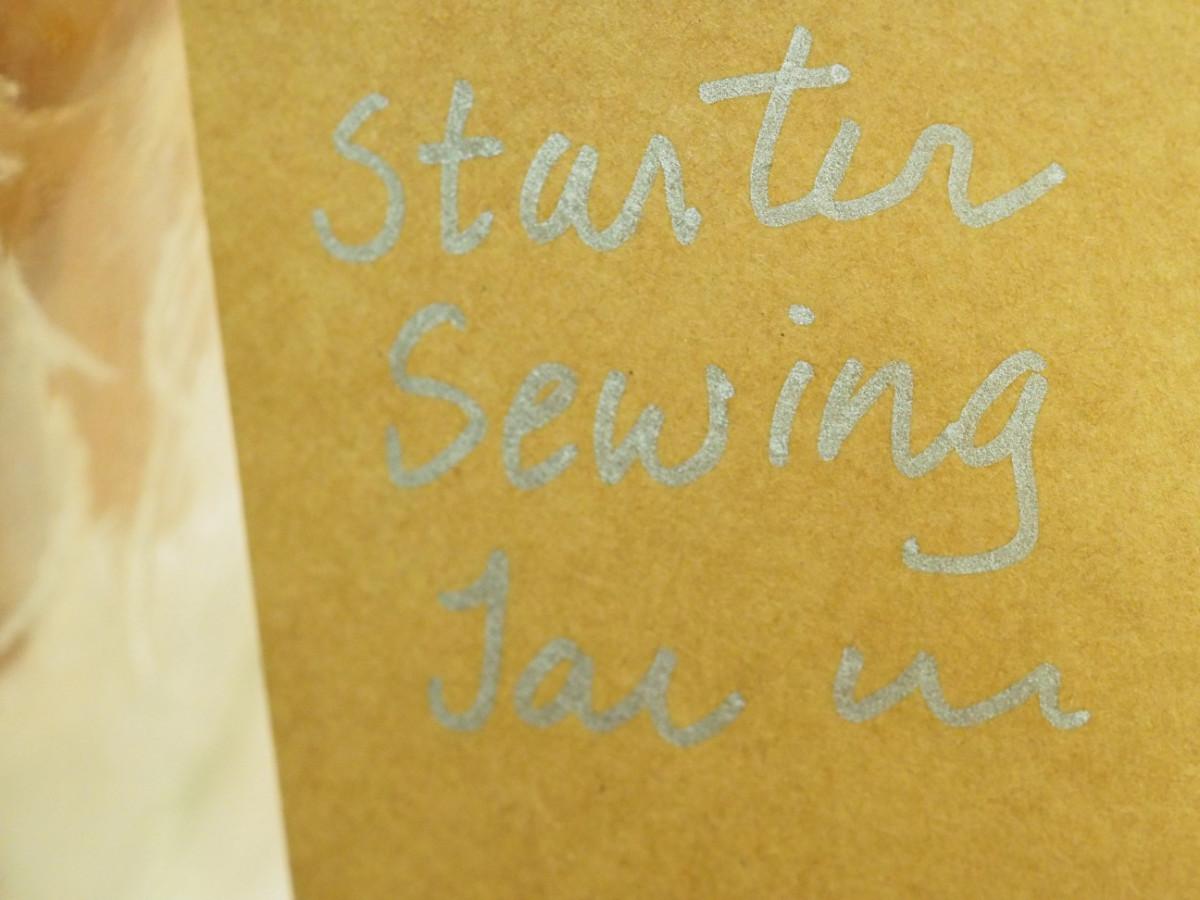 Starter
Sewing
Jar